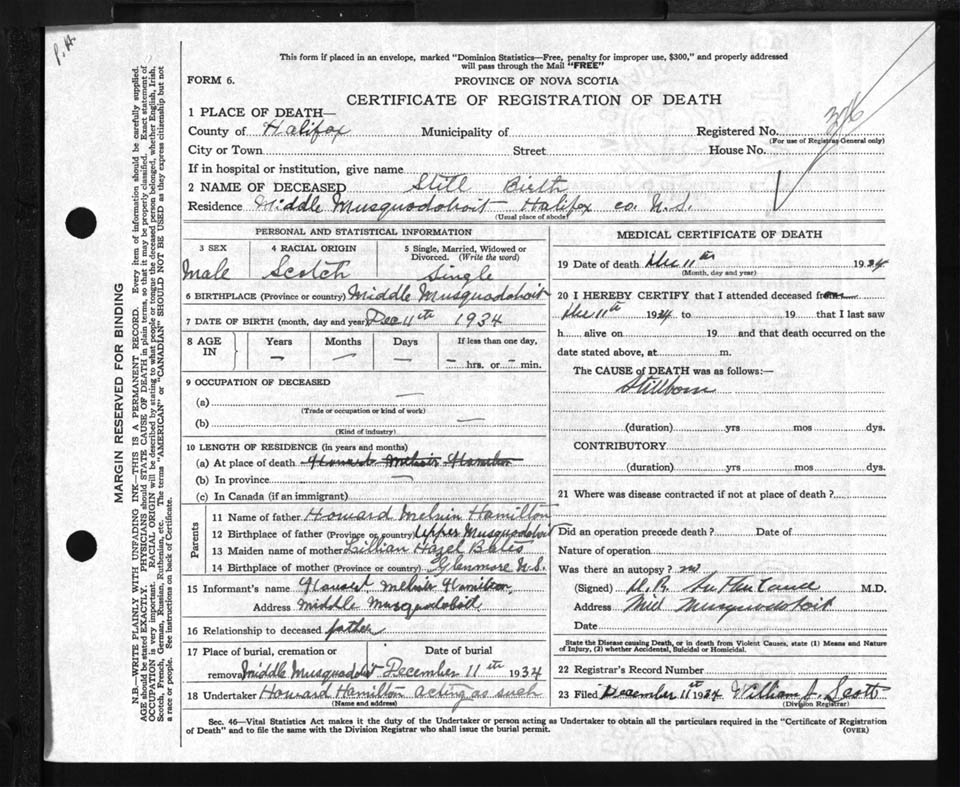 P.H.
This form if placed in an envelope, marked "Dominion Statistics—Free, penalty for improper use, $300," and properly addressed
will pass through the Mail "FREE"
FORM 6.
PROVINCE OF NOVA SCOTIA
CERTIFICATE OF REGISTRATION OF DEATH
376
1 PLACE OF DEATH—
County of Halifax Municipality of Registered No.
(For use of Registrar-General only)
City or Town Street House No.
If in hospital or institution, give name
2 NAME OF DECEASED Still Birth
Residence Middle Musquodoboit Halifax co. N.S.
(Usual place of abode)
PERSONAL AND STATISTICAL INFORMATION
3 SEX 4 RACIAL ORIGIN 5 Single, Married, Widowed or
Divorced. (Write the word)
Male Scotch Single
6 BIRTHPLACE (Province or country) Middle Musquodoboit
7 DATE OF BIRTH (month, day and year) Dec 11th 1934
8 AGE IN Years Months Days If less than one day,
— — — — hrs. or — min.
9 OCCUPATION OF DECEASED
(a) —
(Trade or occupation or kind of work)
(b) —
(Kind of industry)
10 LENGTH OF RESIDENCE (in years and months)
(a) At place of death Howard Melvin Hamilton
(b) In province —
(c) In Canada (if an immigrant)
Parents
11 Name of father Howard Melvin Hamilton
12 Birthplace of father (Province or country) Upper Musquodoboit
13 Maiden name of mother Lillian Hazel Bates
14 Birthplace of mother (Province or country) Glenmore N.S.
15 Informant's name Howard Melvin Hamilton
Address Middle Musquodoboit
16 Relationship to deceased father
17 Place of burial, cremation or Date of burial
removal Middle Musquodoboit December 11th 1934
18 Undertaker Howard Hamilton acting as such
(Name and address)
MEDICAL CERTIFICATE OF DEATH
19 Date of death Dec 11th 1934
(Month, day and year)
20 I HEREBY CERTIFY that I attended deceased from
Dec 11th 1934 to 19 that I last saw
h alive on 19 and that death occurred on the
date stated above, at m.
The CAUSE of DEATH was as follows:—
Stillborn
(duration) yrs mos dys.
CONTRIBUTORY
(duration) yrs mos dys.
21 Where was disease contracted if not at place of death?
Did an operation precede death? Date of
Nature of operation
Was there an autopsy? no
(Signed) Sutherland M.D.
Address Mid Musquodoboit
Date
State the Disease causing Death, or in death from Violent Causes, state (1) Means and Nature
of Injury, (2) whether Accidental, Suicidal or Homicidal.
22 Registrar's Record Number
23 Filed December 11th 1934 William J. Scott
(Division Registrar)
Sec. 46—Vital Statistics Act makes it the duty of the Undertaker or person acting as Undertaker to obtain all the particulars required in the "Certificate of Registration
of Death" and to file the same with the Division Registrar who shall issue the burial permit. (OVER)
MARGIN RESERVED FOR BINDING
N.B.—WRITE PLAINLY WITH UNFADING INK—THIS IS A PERMANENT RECORD. Every item of information should be carefully supplied.
AGE should be stated EXACTLY. PHYSICIANS should STATE CAUSE OF DEATH in plain terms, so that it may be properly classified. Exact statement of
OCCUPATION is very important. RACIAL ORIGIN will be described by stating to what people or tongue the deceased person belonged, whether English, Irish,
Scotch, French, German, Russian, Ruthenian, etc. The terms "AMERICAN" or "CANADIAN" SHOULD NOT BE USED as they express citizenship but not
a race or people. See instructions on back of Certificate.